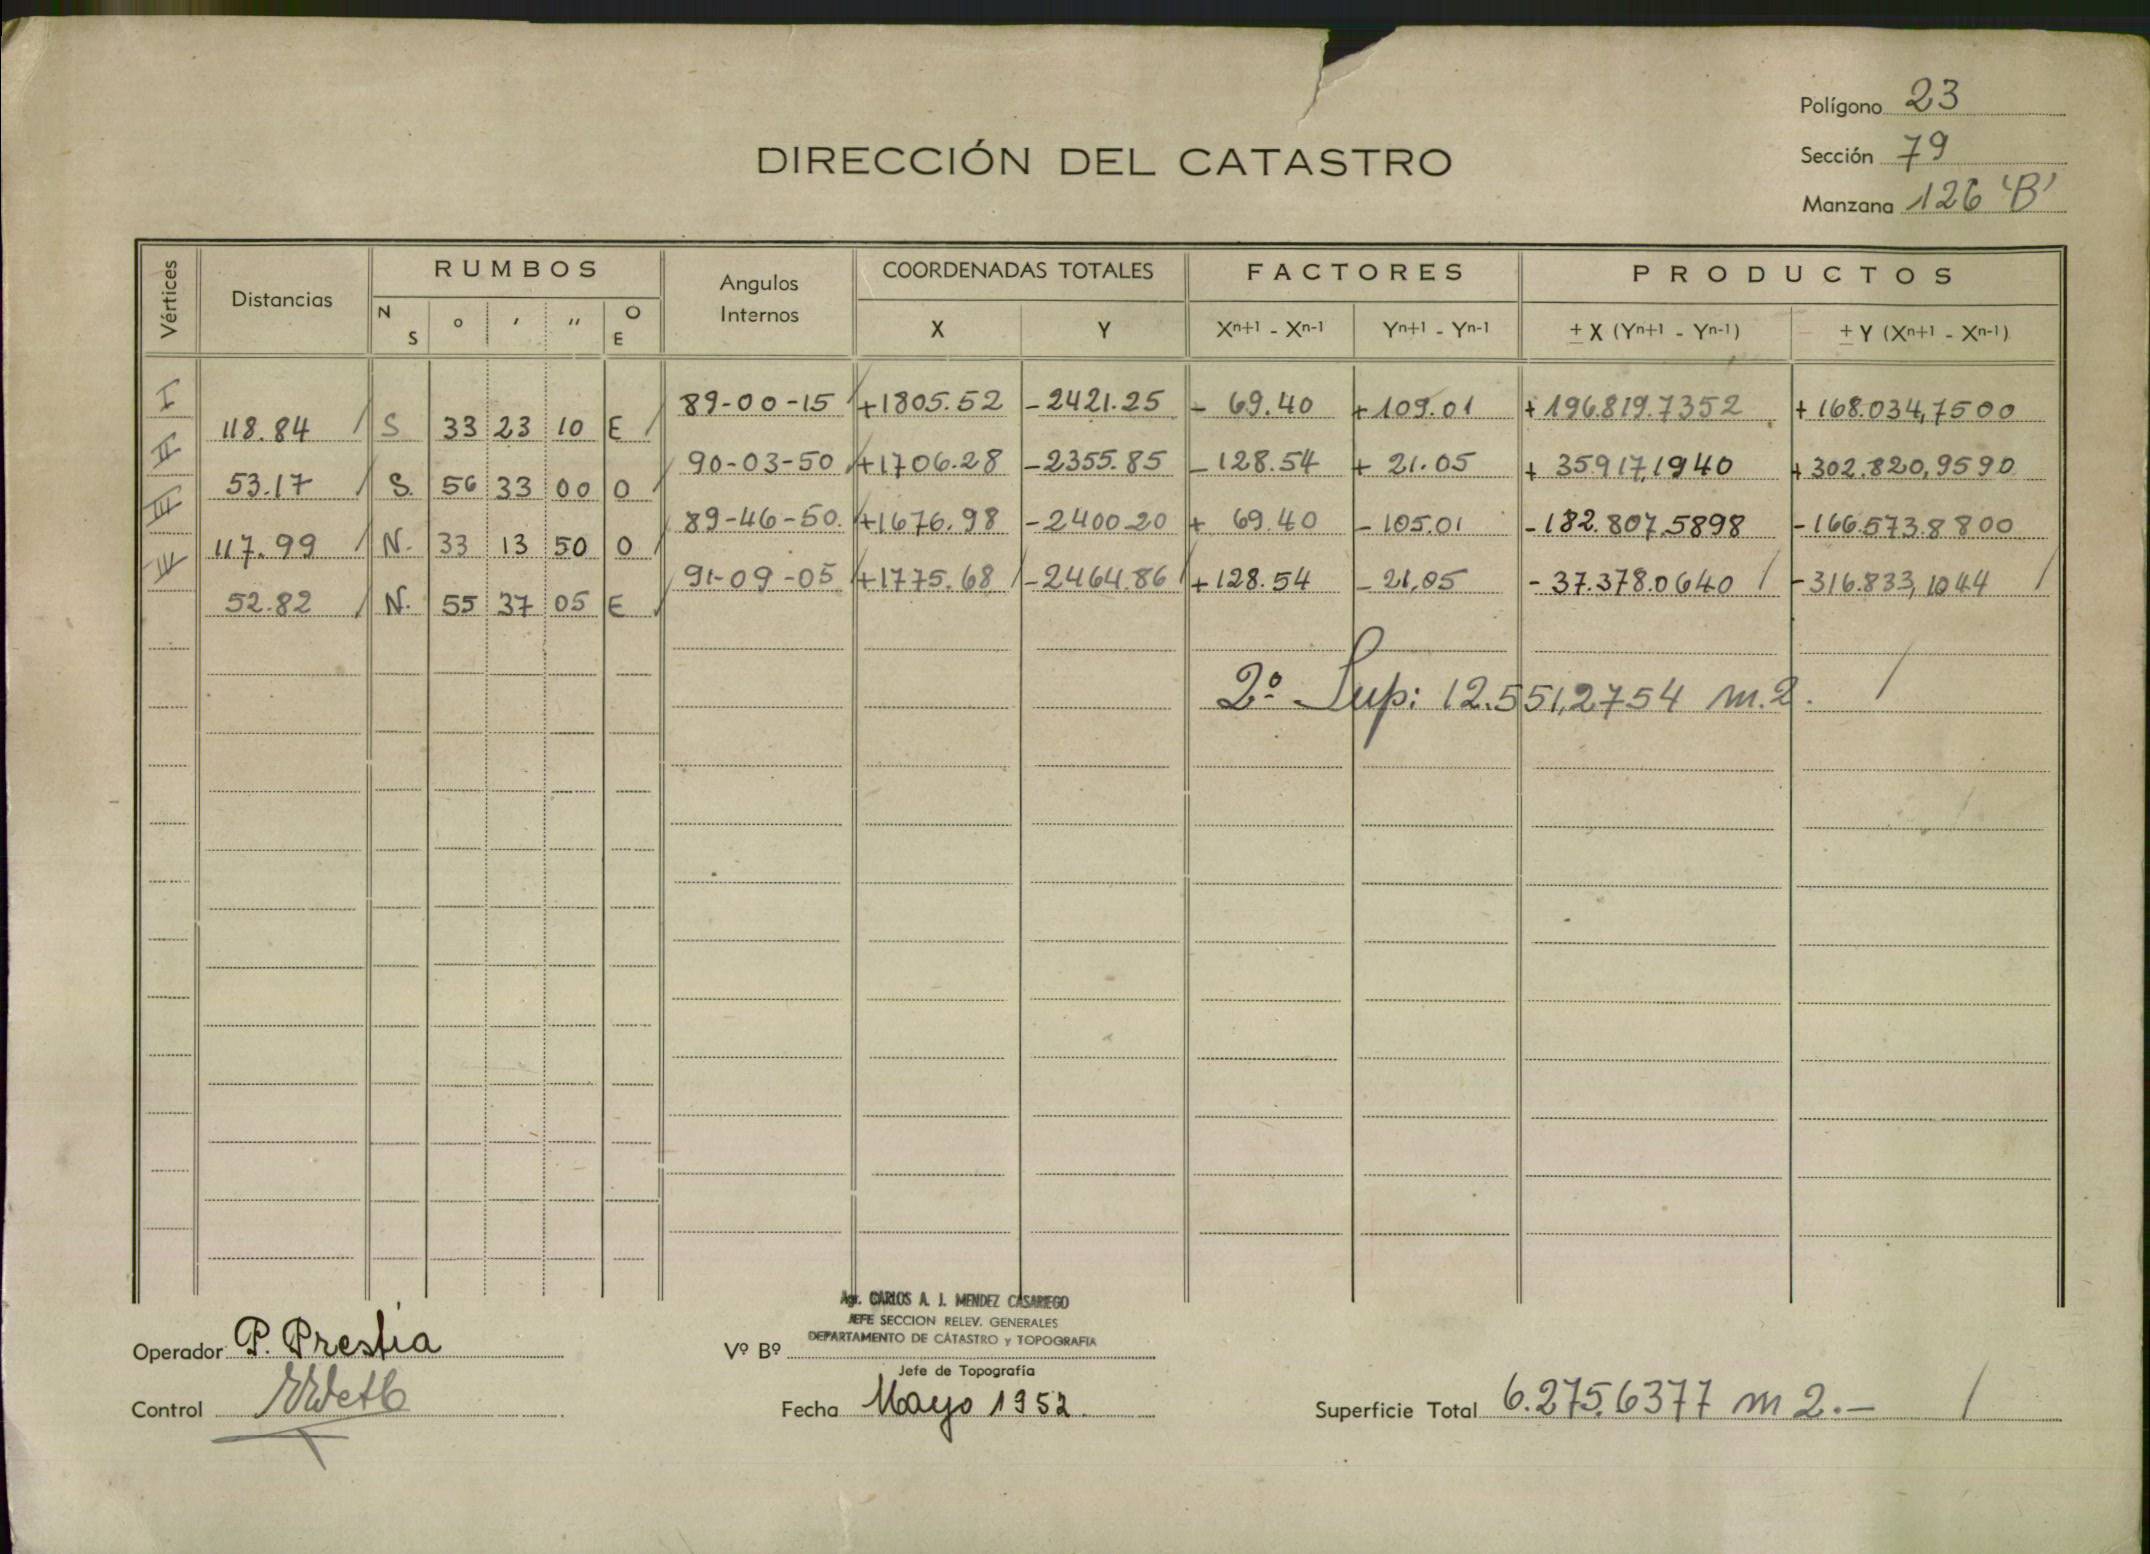 Polígono 23
Sección 79
Manzana 126 'B'
DIRECCIÓN DEL CATASTRO
Vértices Distancias RUMBOS Angulos Internos COORDENADAS TOTALES FACTORES PRODUCTOS
N S ° ' '' O E X Y Xn+1 - Xn-1 Yn+1 - Yn-1 ± X (Yn+1 - Yn-1) ± Y (Xn+1 - Xn-1)
I 89-00-15 +1805.52 -2421.25 - 69.40 +109.01 +196.819.7352 +168.034,7500
118.84 S 33 23 10 E
II 90-03-50 +1706.28 -2355.85 -128.54 + 21.05 + 35.917,1940 +302.820,9590
53.17 S. 56 33 00 O
III 89-46-50. +1676.98 -2400.20 + 69.40 -105.01 -182.807.5898 -166.573.8800
117.99 N. 33 13 50 O
IV 91-09-05 +1775.68 -2464.86 +128.54 -21,05 -37.378.0640 -316.833,1044
52.82 N. 55 37 05 E
2º Sup: 12.551,2754 m.2.
Operador P. Prestia
Control
Vº Bº
Agr. CARLOS A. J. MENDEZ CASARIEGO
JEFE SECCION RELEV. GENERALES
DEPARTAMENTO DE CATASTRO y TOPOGRAFIA
Jefe de Topografía
Fecha Mayo 1952.
Superficie Total 6.275.6377 m2.-